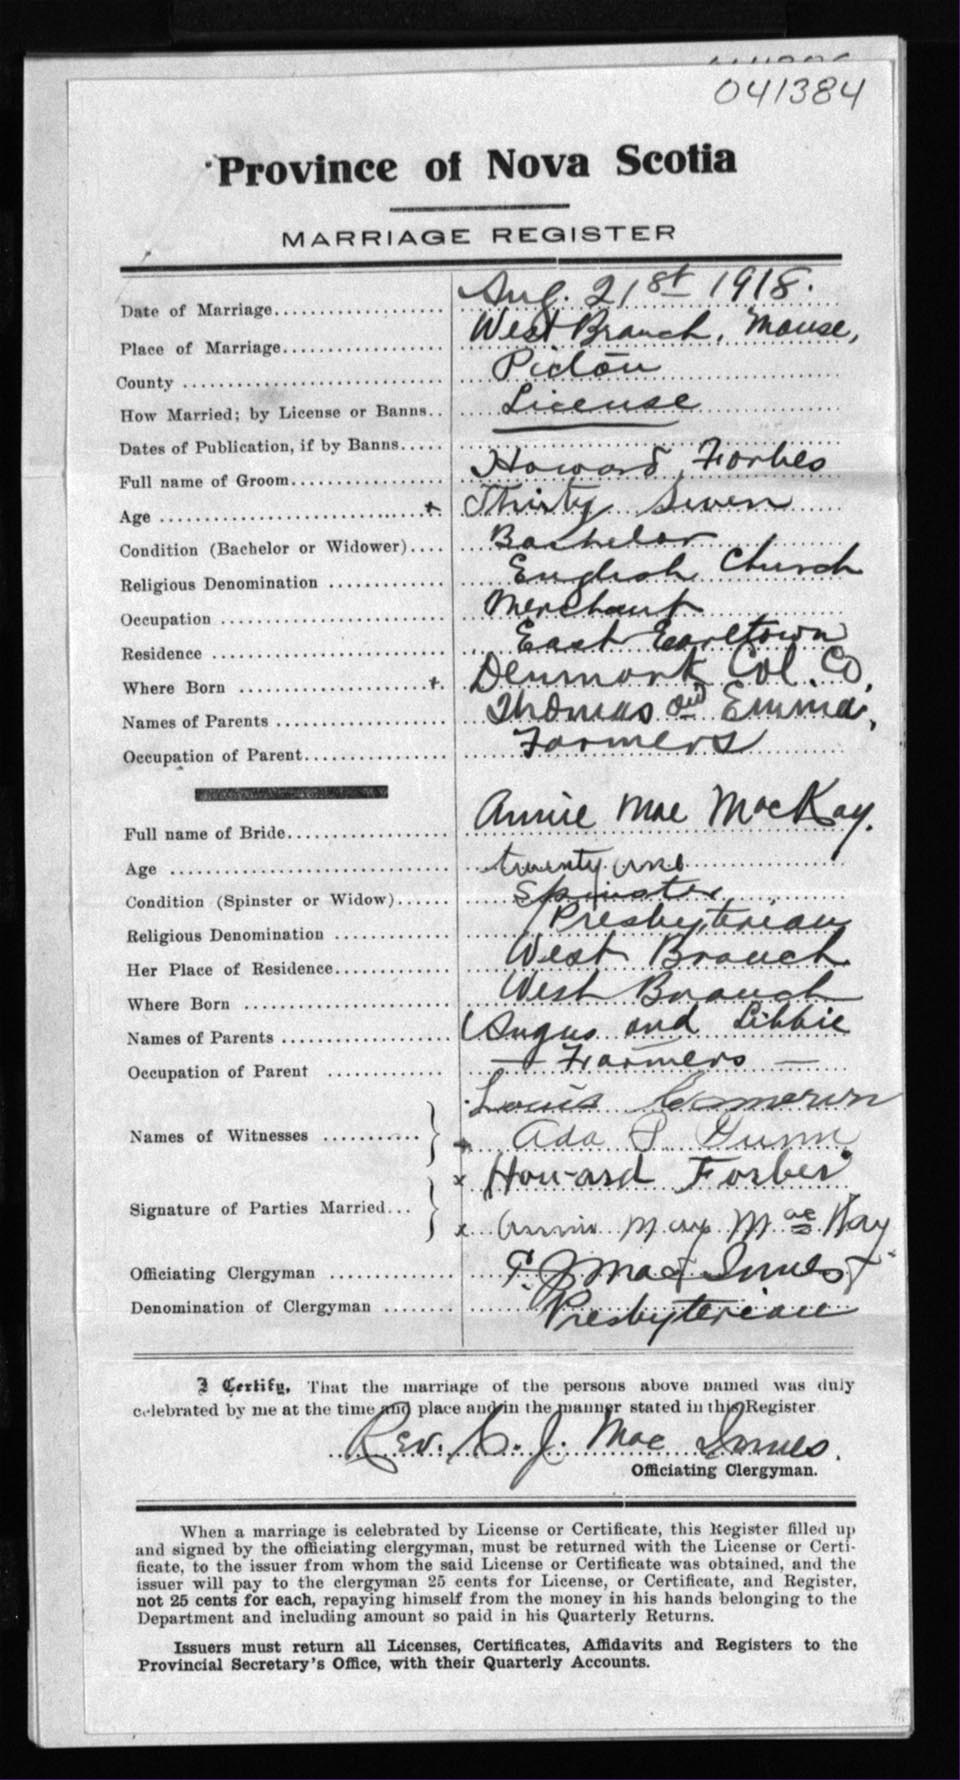 041384
Province of Nova Scotia
MARRIAGE REGISTER
Date of Marriage Aug. 21st 1918.
Place of Marriage West Branch, Manse,
County Pictou
How Married; by License or Banns License
Dates of Publication, if by Banns
Full name of Groom Howard Forbes
Age x Thirty Seven
Condition (Bachelor or Widower) Bachelor
Religious Denomination English Church
Occupation Merchant
Residence East Earltown
Where Born x Denmark Col. Co.
Names of Parents Thomas and Emma,
Occupation of Parent Farmers
Full name of Bride Annie Mae MacKay.
Age twenty one
Condition (Spinster or Widow) Spinster
Religious Denomination Presbyterian
Her Place of Residence West Branch
Where Born West Branch
Names of Parents Angus and Libbie
Occupation of Parent — Farmers —
Louis Cameron
Names of Witnesses x Ada S. Gunn
x Howard Forbes
Signature of Parties Married
x Annie May Mac Kay
Officiating Clergyman J Mac Innes
Denomination of Clergyman Presbyterian
I Certify, That the marriage of the persons above named was duly
celebrated by me at the time and place and in the manner stated in this Register
Rev. C. J. Mac Innes.
Officiating Clergyman.
When a marriage is celebrated by License or Certificate, this Register filled up
and signed by the officiating clergyman, must be returned with the License or Certi-
ficate, to the issuer from whom the said License or Certificate was obtained, and the
issuer will pay to the clergyman 25 cents for License, or Certificate, and Register,
not 25 cents for each, repaying himself from the money in his hands belonging to the
Department and including amount so paid in his Quarterly Returns.
Issuers must return all Licenses, Certificates, Affidavits and Registers to the
Provincial Secretary's Office, with their Quarterly Accounts.